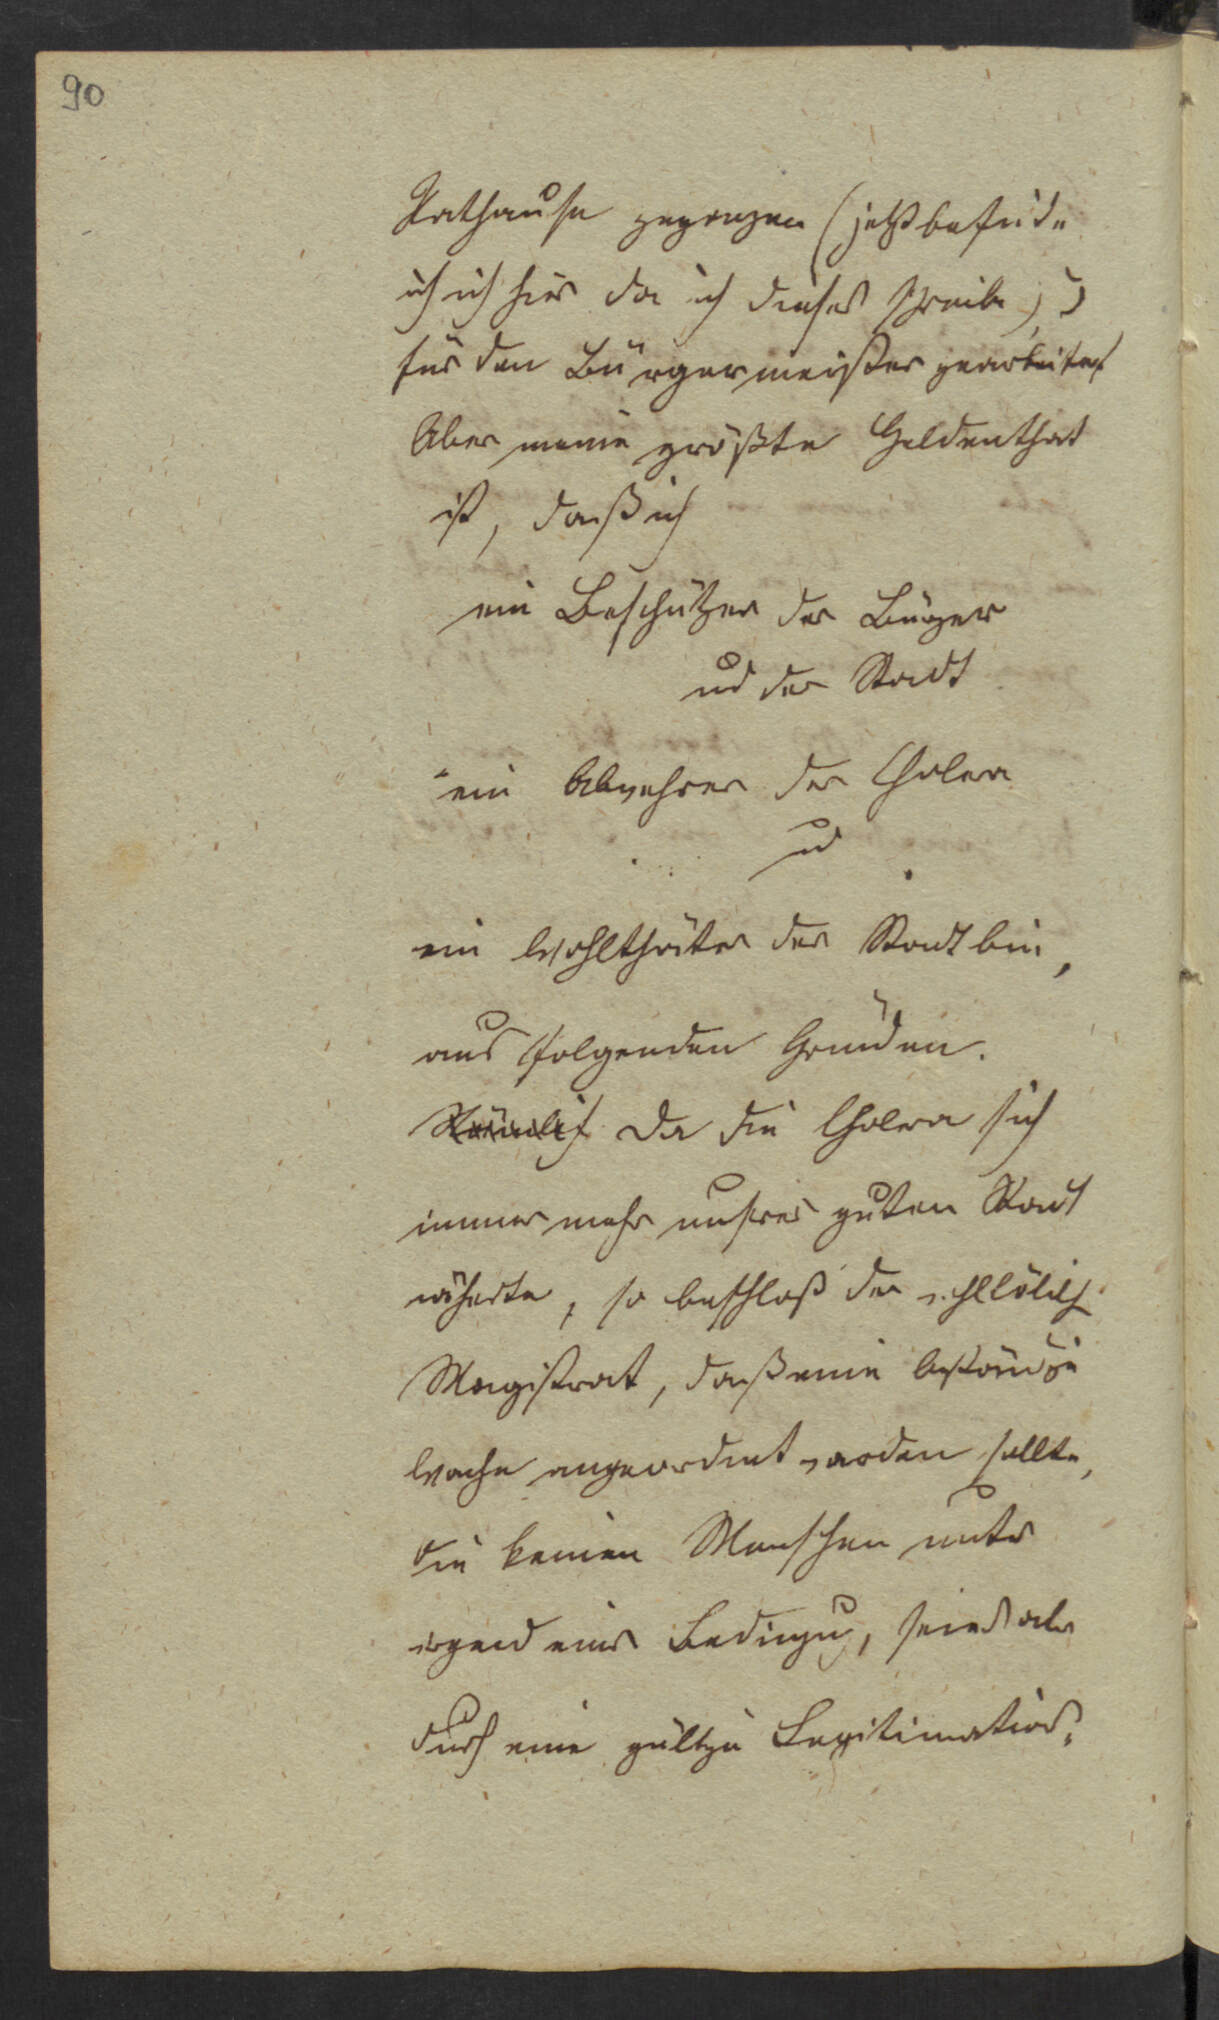 90
Rathause gegangen (jetzt befinde
ich ich hier da ich dieses schreibe,)
für den Bürgermeister gearbeitet
Aber meine größte Heldenthat
ist, daß ich
ein Beschützer der Bürger
und der Stadt
ein Abwehrer der Cholera
und
ein Wohlthäter der Stadt bin,
aus folgenden Gründen.
Nämlich Da die Cholera sich
immer mehr unsrer guten Stadt
näherte, so beschloß der wohllöblich
Magistrat, daß eine beständige
Wache angeordnet werden sollte,
die keinen Menschen unter
irgend einer Bedingung, sei es als
durch eine gültige Legitimations